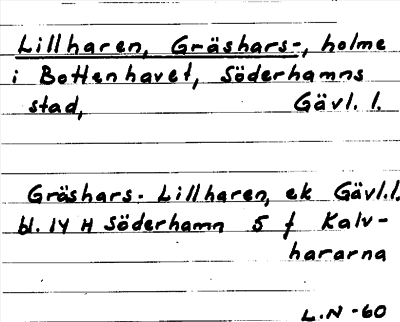 Lillharen, Gräshars-, holme
i Bottenhavet, Söderhamns
stad, Gävl. l.
Gräshars- Lillharen, ek Gävl.l.
bl. 14 H Söderhamn 5 f Kalv-
hararna
L.N -60